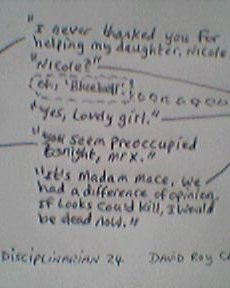 "I never thanked you for
helping my daughter, Nicole.
"Nicole?"
(oh, 'Bluebell'.)
"Yes, Lovely girl."
"you seem preoccupied
tonight, mr x."
"It's Madam Mace, we
had a difference of opinion.
If Looks Could kill, I would
be dead now."
DISCIPLINARIAN 24 DAVID ROY